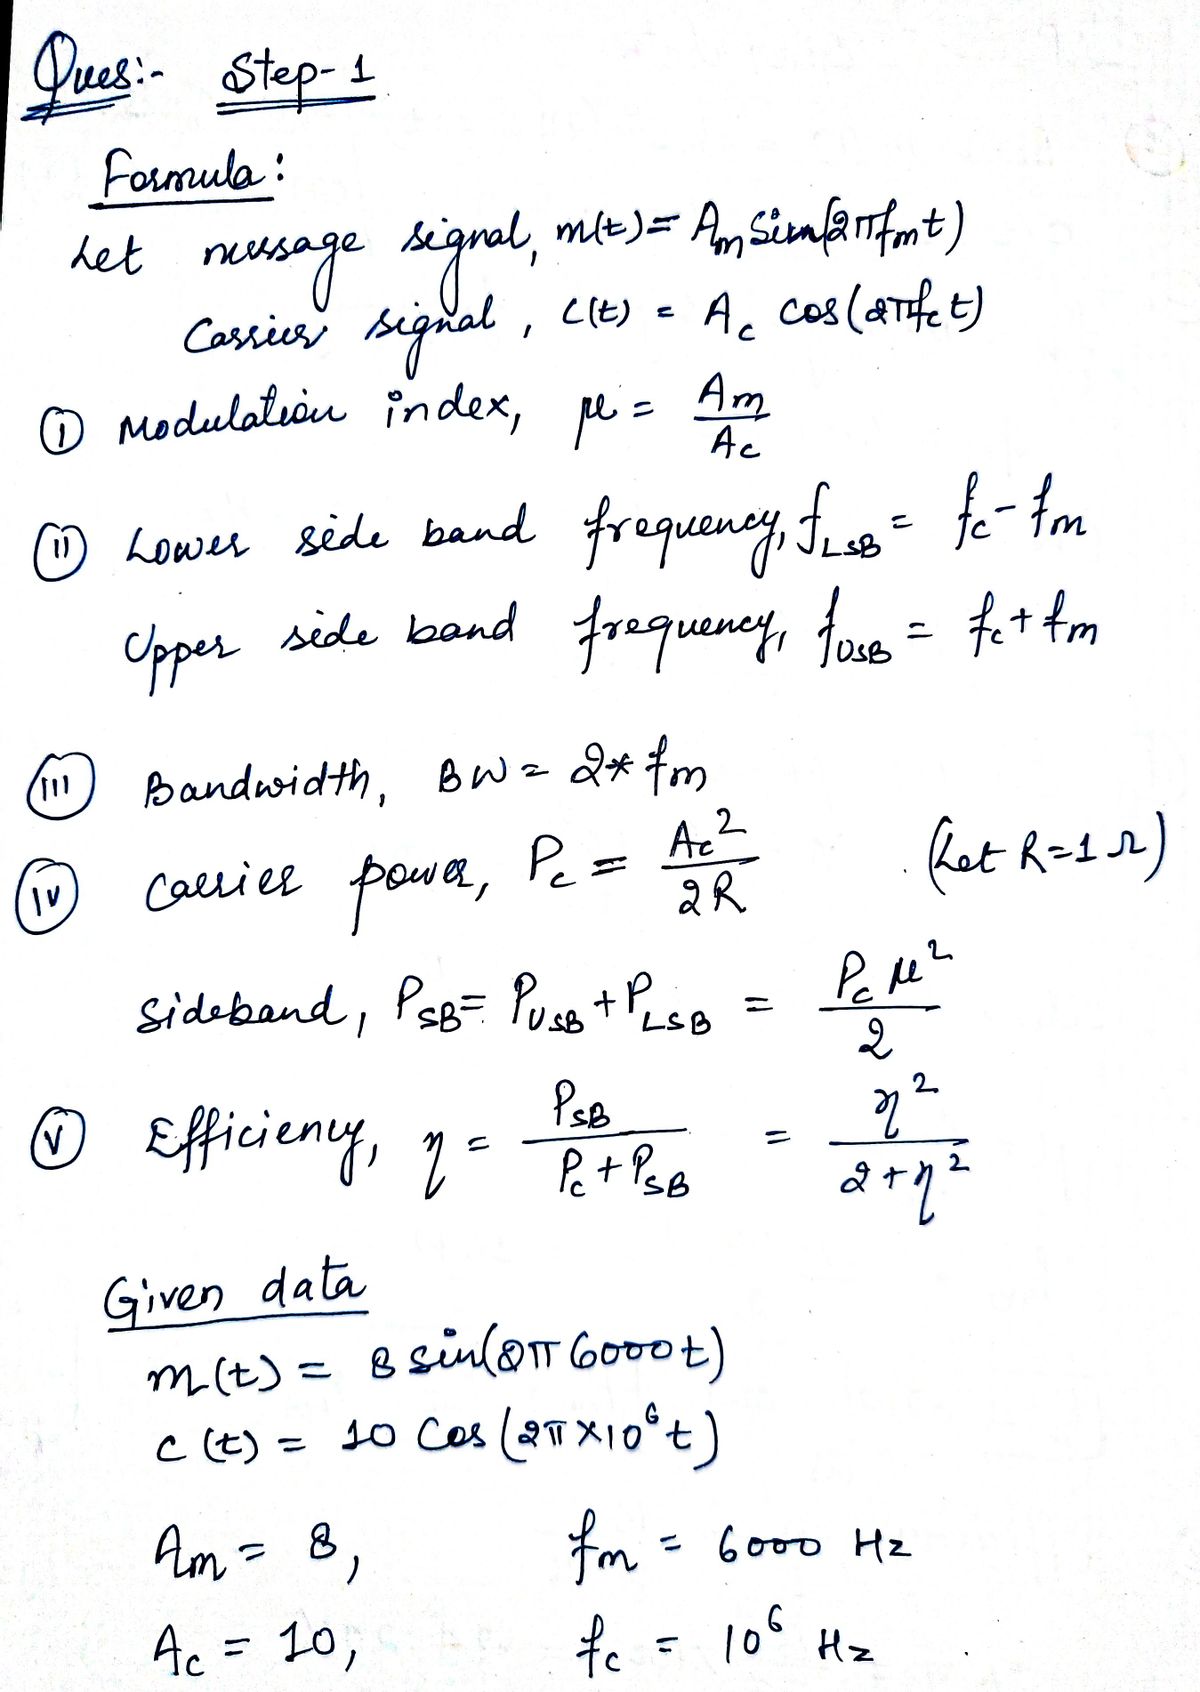 Ques:- Step-1
Formula:
Let message signal, m(t) = Am Sin(2πfmt)
Carrier signal, c(t) = Ac cos(2πfct)
(i) Modulation index, μ = Am/Ac
(ii) Lower side band frequency, fLSB = fc - fm
Upper side band frequency, fUSB = fc + fm
(iii) Bandwidth, BW = 2* fm
(iv) Carrier power, Pc = Ac²/2R (Let R=1Ω)
Sideband, PSB = PUSB + PLSB = Pc μ²/2
(v) Efficiency, η = PSB/(Pc + PSB) = η²/(2+η²)
Given data
m(t) = 8 sin(2π 6000t)
c(t) = 10 Cos (2π×10⁶t)
Am = 8, fm = 6000 Hz
Ac = 10, fc = 10⁶ Hz